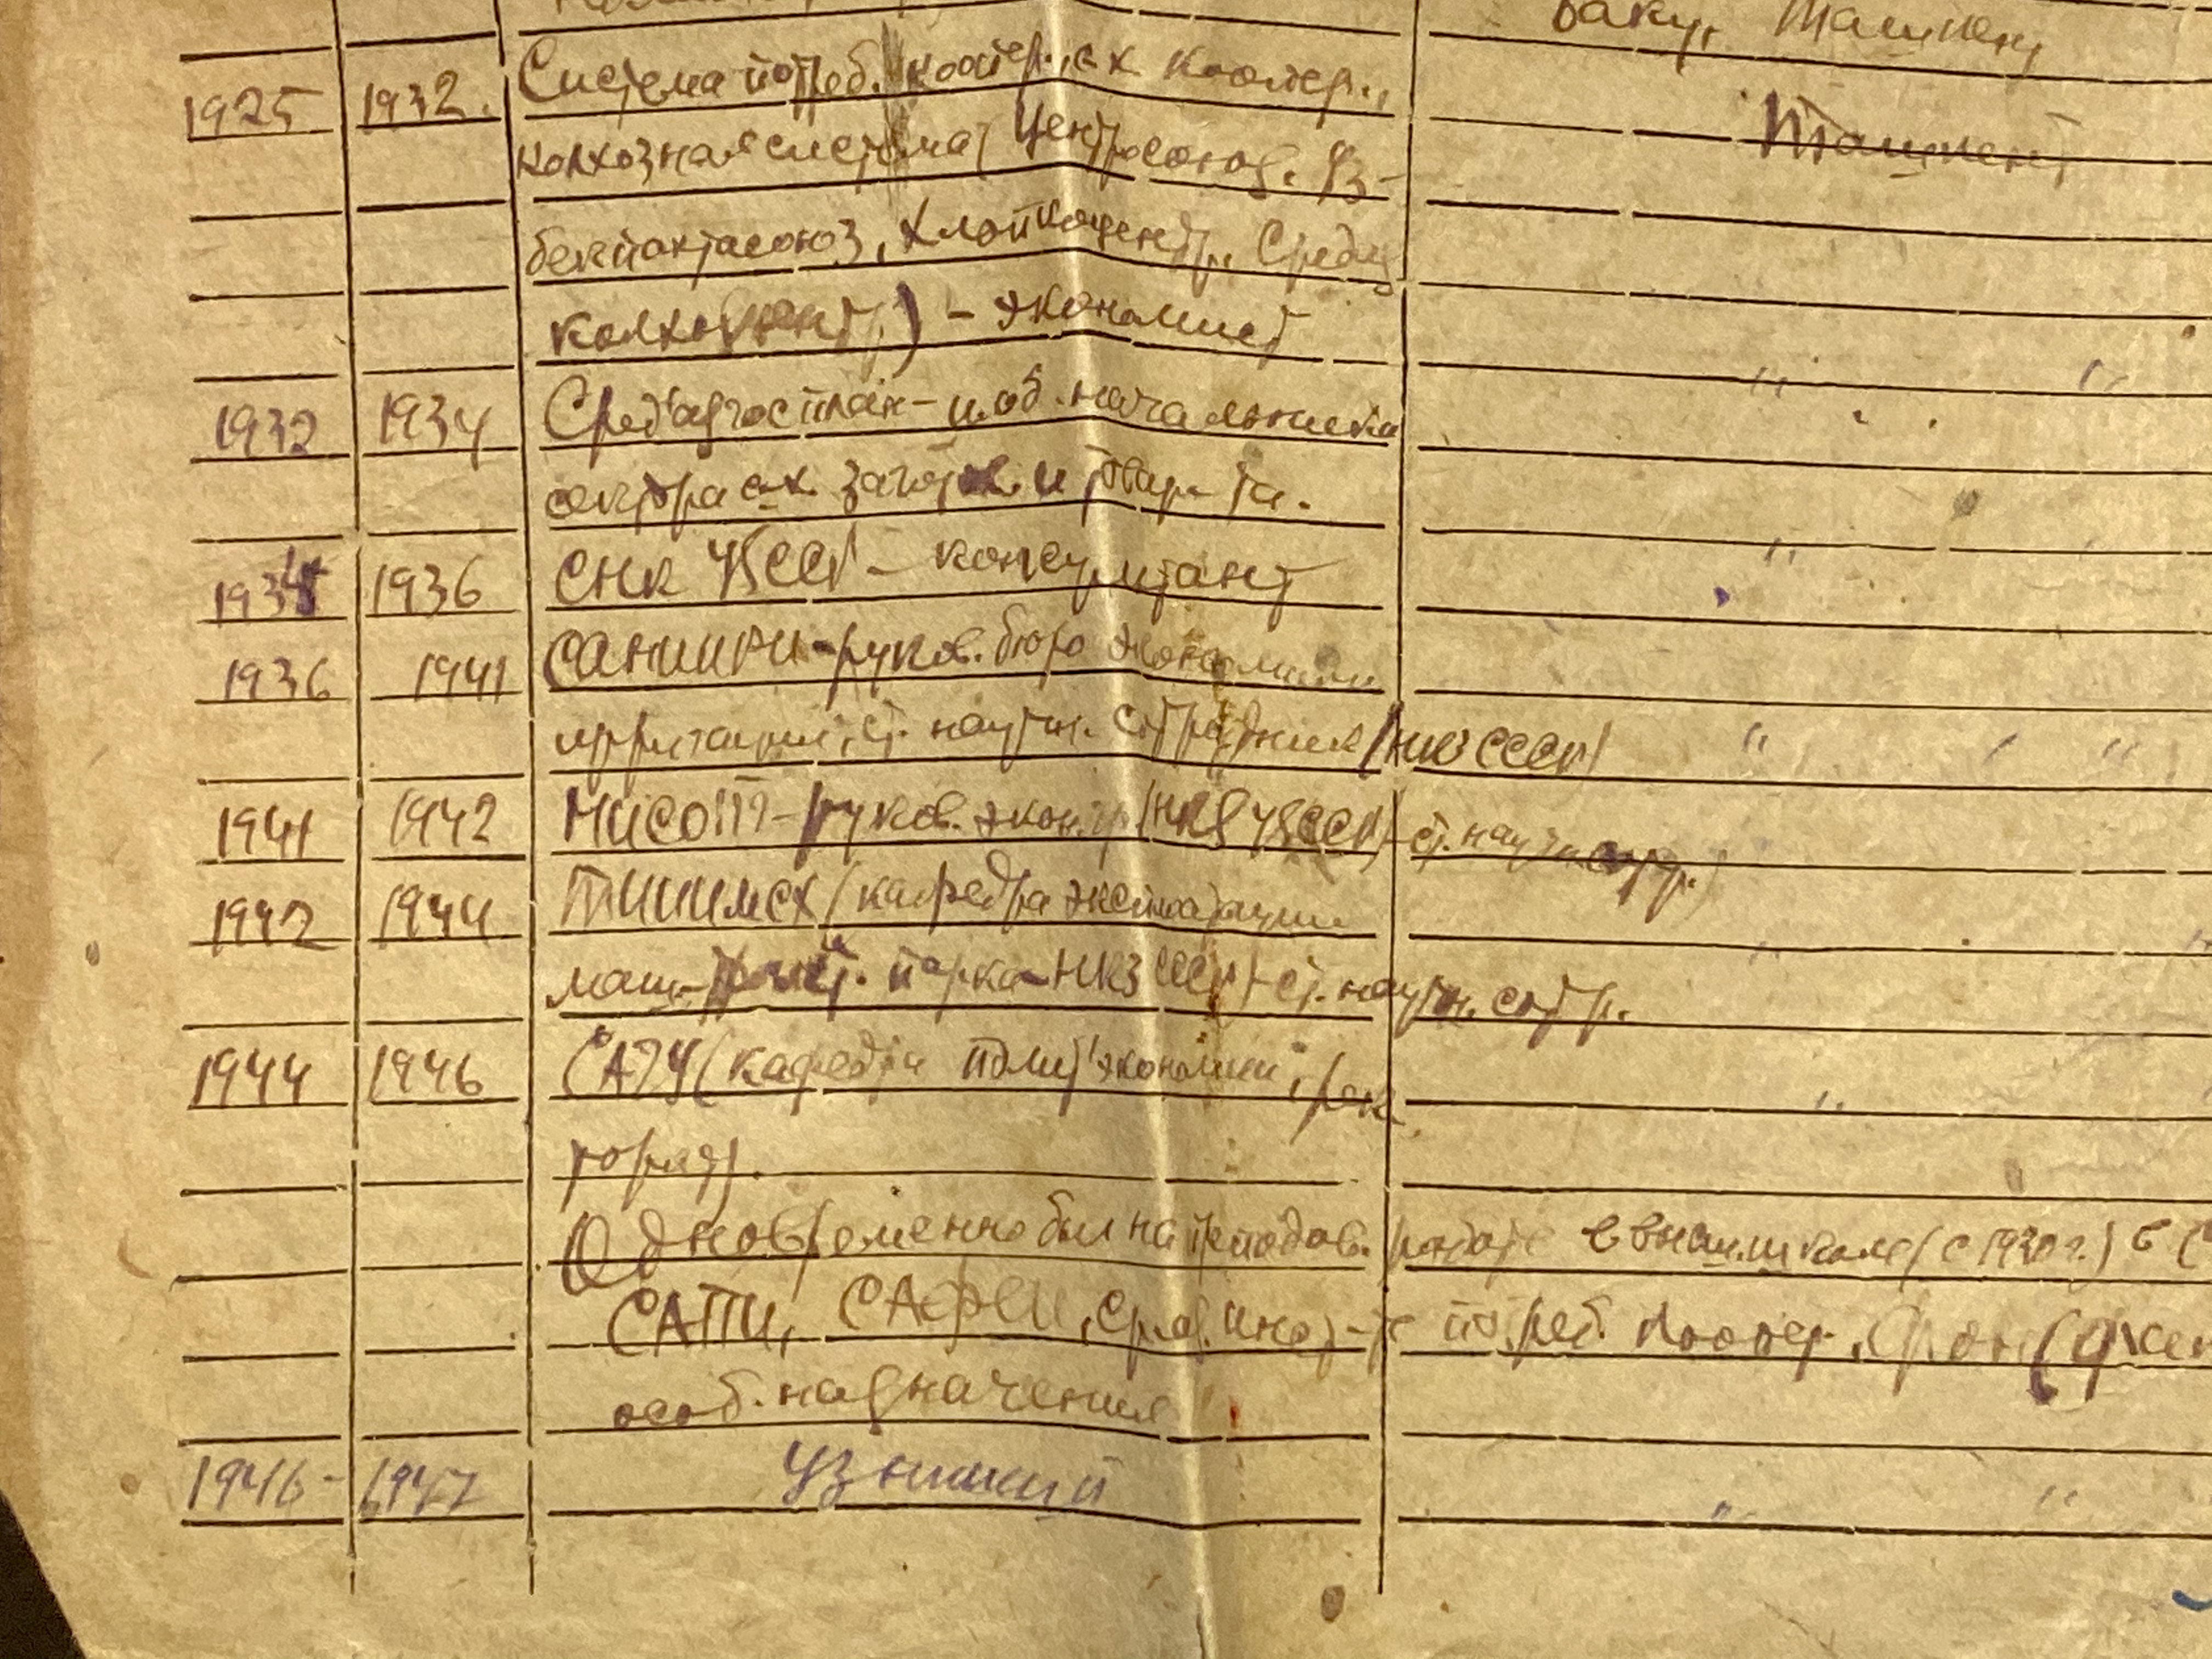 Баку, Ташкент
1925 1932. Система потреб. коопер., с х коопер., Ташкент
колхозная система (Центросоюз. Уз-
бекпахтасоюз, Хлопкоцентр, Средаз
колхозцентр) – экономист " "
1932 1934 Средазгосплан – и.об. начальника
сектора с.х. заготов. и товар-та. "
1934 1936 СНК УзССР – консультант
1936 1941 САНИИРИ – руков. бюро экономики
ирригации, ст. научн. сотрудник (НКЗ СССР) " "
1941 1942 НИСОТ – руков. экон. гр (НКЗ УзССР) ст. научн сотр.)
1942 1944 ТИИИМСХ (кафедра эксплоатации "
маш.-тракт. парка – НКЗ СССР) ст. научн. сотр.
1944 1946 САГУ (кафедра полит'экономии, рек "
торат).
Одновременно был на преподав. работе в высш. школе (с 1930 г.) в
САПИ, САФЭИ, Сраз. инст-те потреб. коопер.
особ. назначения
1946 - 1947 УзНИХИ " "